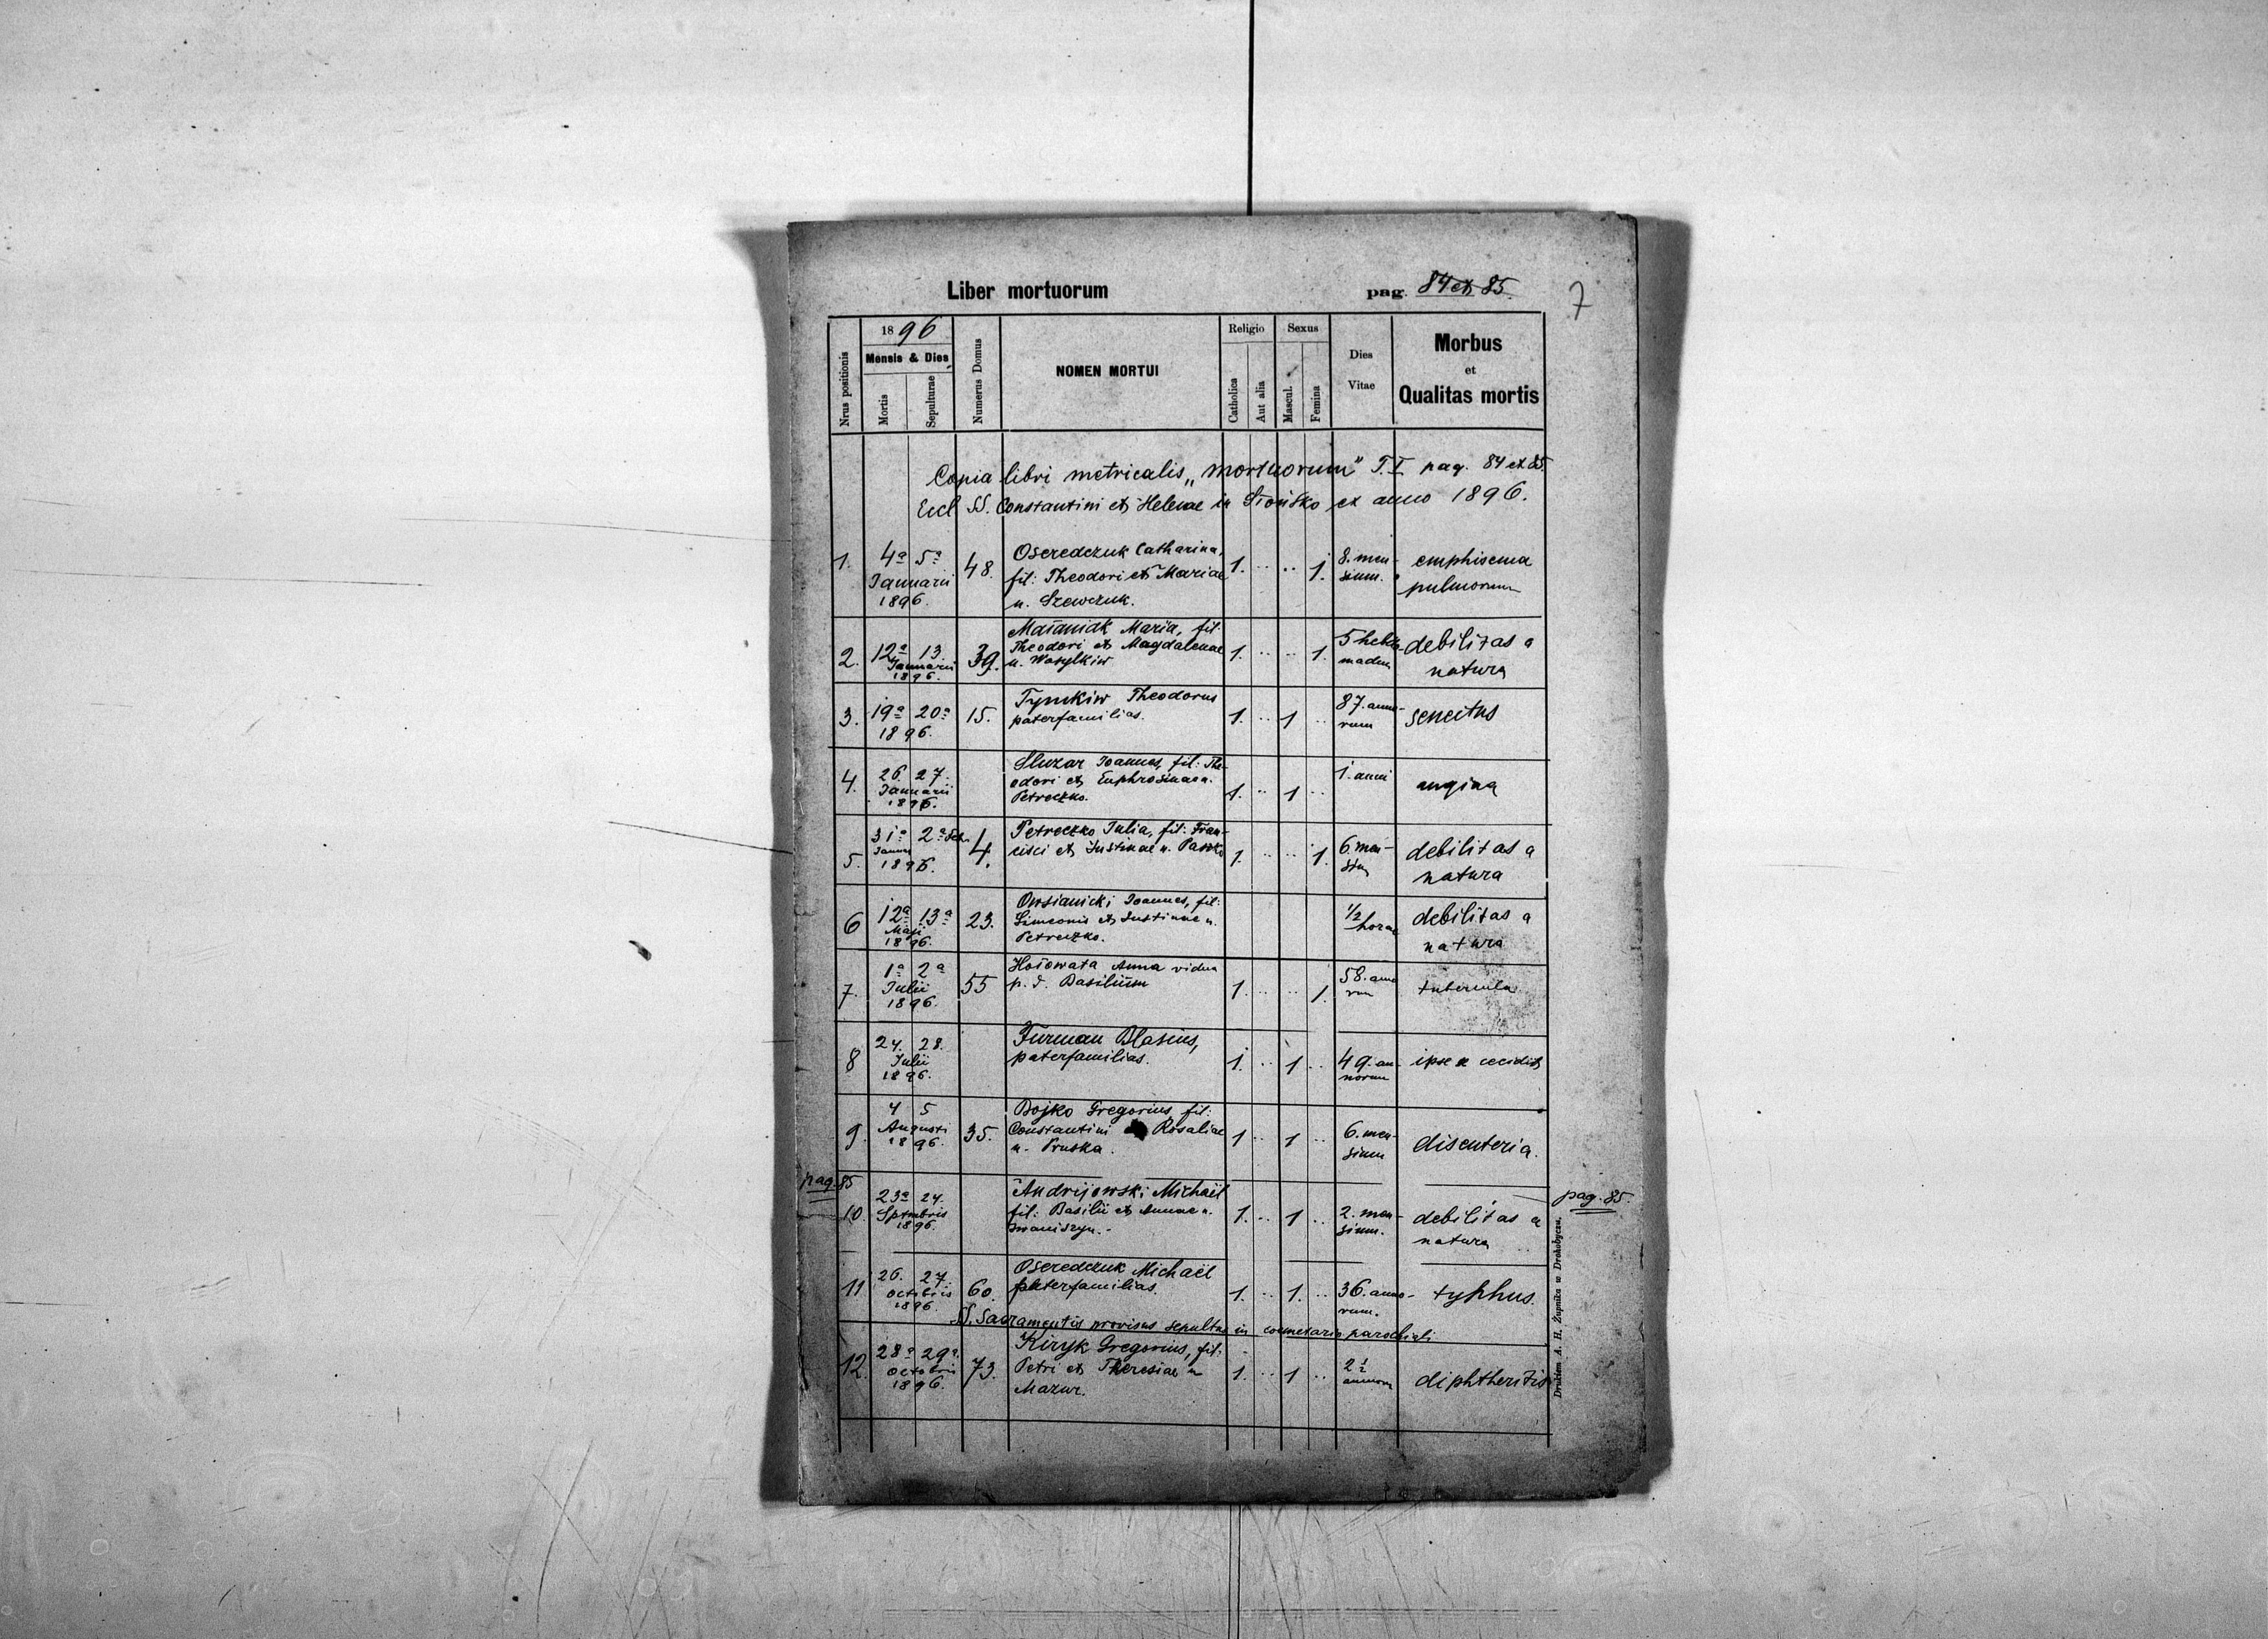 Liber mortuorum pag. 84 et 85.
7
Nrus positionis
1896
Mensis & Dies
Mortis
Sepulturae
Numerus Domus
NOMEN MORTUI
Religio
Catholica
Aut alia
Sexus
Mascul.
Femina
Dies
Vitae
Morbus
et
Qualitas mortis
Copia libri metricalis „mortuorum" T. I pag. 84 et 85.
Eccl SS. Constantini et Helenae in Słońsko ex anno 1896.
1. 4a 5a 48. Oseredczuk Catharina, 1. .. .. 1. 8. men- emphisema
Januarii fil: Theodori et Mariae sium. pulmorum
1896. n. Szewczuk.
2. 12a 13 39. Maśaniak Maria, fil: 1. .. .. 1. 5 hebdo- debilitas a
Januarii Theodori et Magdalenae madum natura
1896. n. Wasylkiw
3. 19a 20a 15. Tymkiw Theodorus 1. .. 1 .. 87. anno- senectus
1896. paterfamilias. rum
4. 26 27. Sluzar Joannes, fil: The- 1. .. 1 .. 1. anni angina
Januarii odori et Euphrosinae n.
1896. Petreczko.
5. 31a 2a Feb. 4. Petreczko Julia, fil: Fran- 1. .. .. 1. 6. men- debilitas a
Januar cisci et Justinae n. Pasnko sium natura
1896.
6 12a 13a 23. Owsianicki Joannes, fil: 1/2 debilitas a
Maji Simeonis et Justinae n. horae natura
1896. Petreczko.
7. 1a 2a 55 Hośowata Anna vidua 1. .. .. 1. 58. anno tubercula
Julii p. d. Basilium rum
1896.
8 27. 28. Furman Blasius, 1. .. 1 .. 49. an- ipse cecidit
Julii paterfamilias. norum
1896.
9. 4 5 35. Bojko Gregorius, fil: 1 .. 1 .. 6. men- disenteria.
Augusti Constantini et Rosaliae sium
1896. n. Pruska.
pag. 85
pag. 85.
10. 23a 24. Andrijowski Michaël 1. .. 1 .. 2. men- debilitas a
Sptmbris fil: Basilii et Annae n. sium. natura
1896. Iwaniszyn.
11 26. 27. 60. Oseredczuk Michaël 1. .. 1. .. 36. anno- typhus.
octobris paterfamilias. rum.
1896.
SS. Sacramentis provisus sepultus in coemetario parochiali
12. 28a 29a. 73. Kiryk Gregorius, fil: 1. .. 1 .. 2 1/2 diphtheritis
octobris Petri et Theresiae n annorum
1896. Mazur.
Drukiem A. H. Żupnika w Drohobyczu.